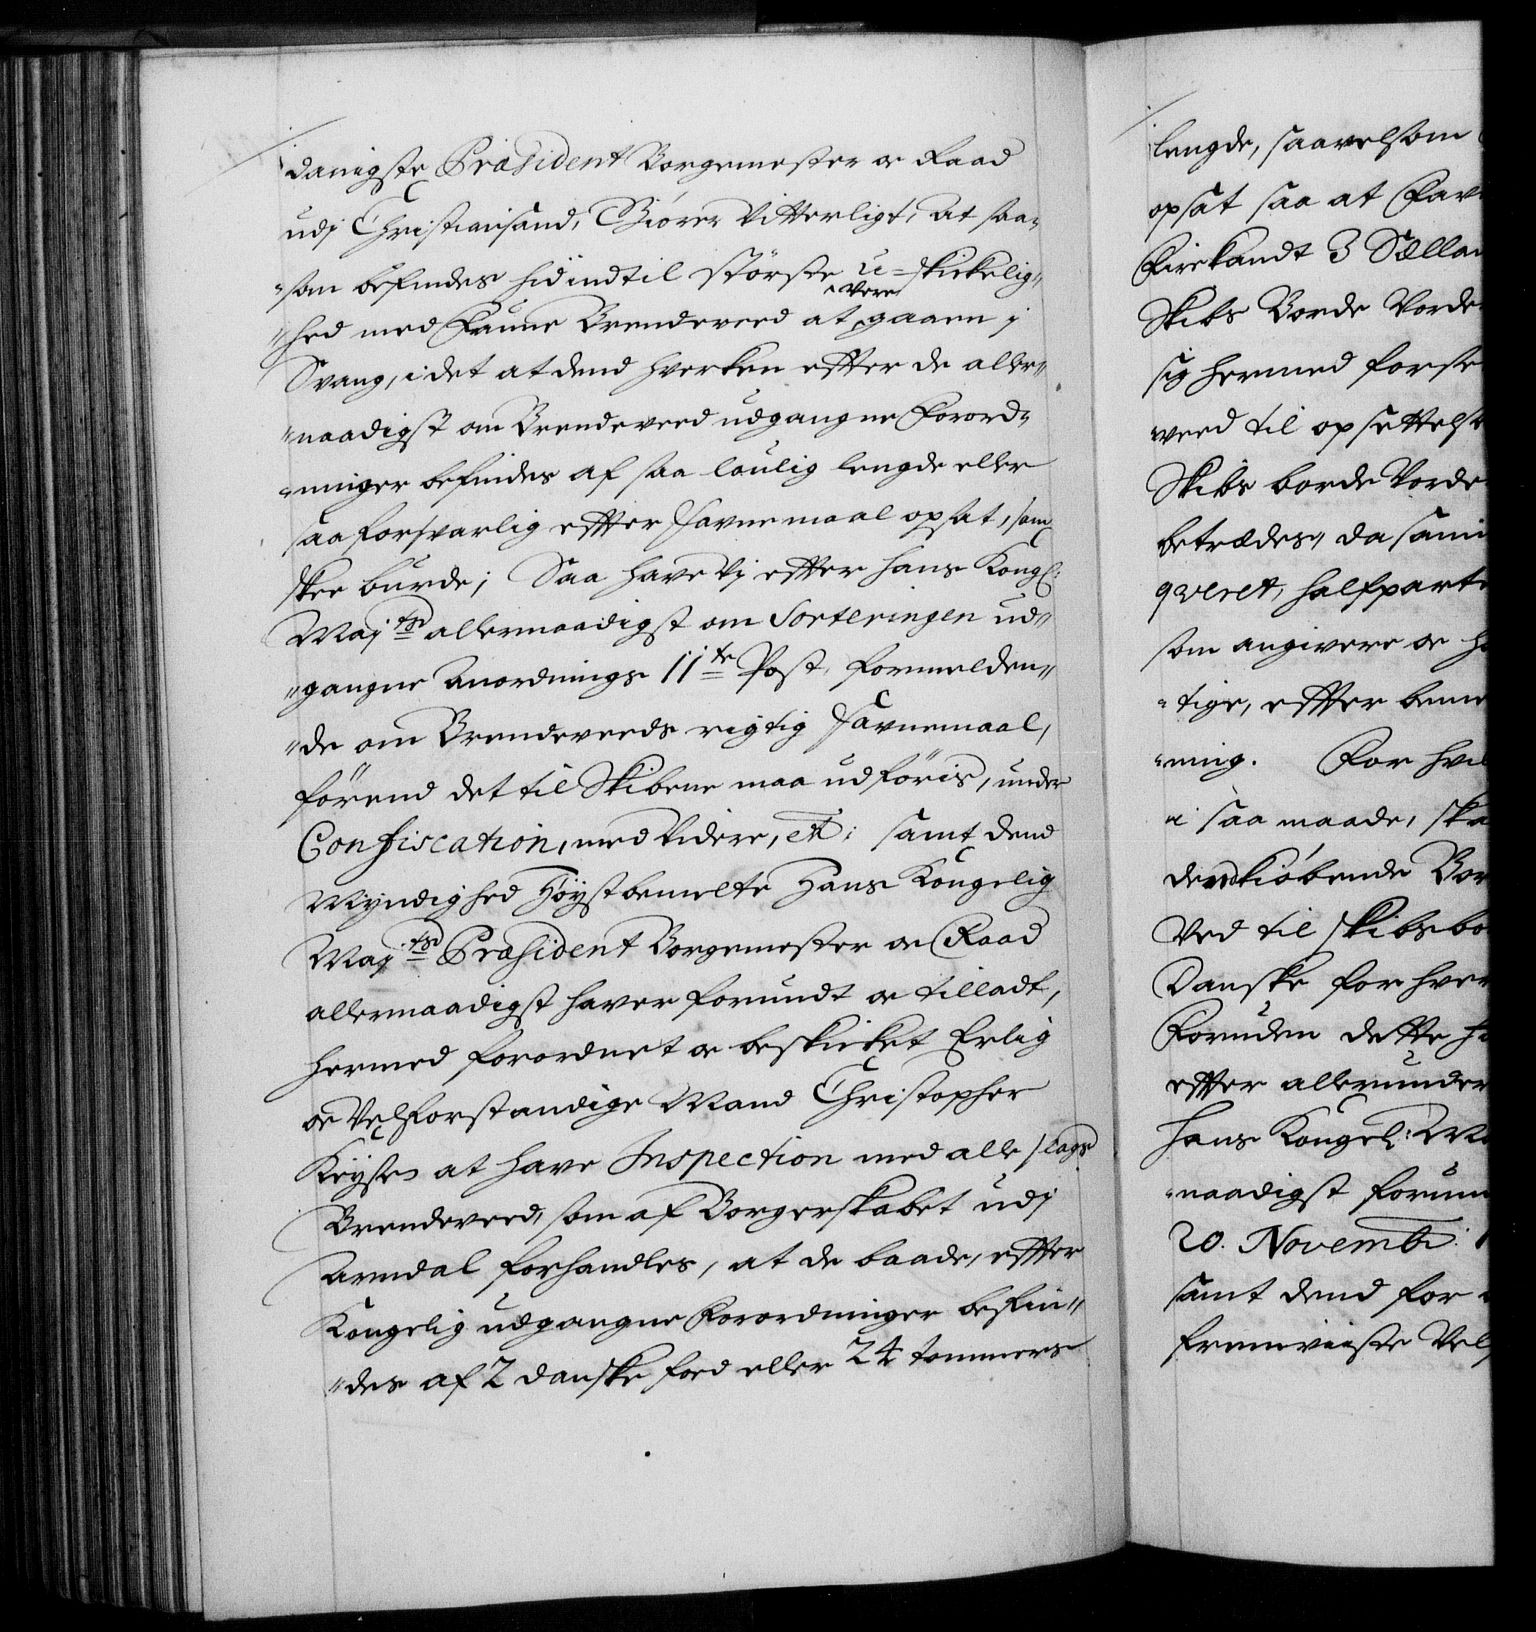 danigste Præsident Borgemester oc Raad
udj Christiansand, Giører Vitterligt, At saa-
-som befindes hid indtil störste u-skickelig-
-hed med Faune Brendeveed at vere gaaen j
Svang, i det at dend hverken effter de aller-
-naadigst om Brendeveed udgangne Forord-
-ninger befindes af saa loulig lengde eller
saa forsvarlig effter favnemaal opsat, som
skee burde; Saa have Vj effter Hans Kongl:
Maj.ts allernaadigst om Sorteringen ud-
-gangne Anordnings 11te Post, formelden-
-de om Brendeveeds rigtig favnemaal,
förend det til Skibene maa udföris, under
Confiscation, med videre, etc: samt dend
Myndighed Höystbemelte Hans Kongelig
Maj.ts Præsident Borgemester oc Raad
allernaadigst haver forundt oc tilladt,
hermed forordnet oc beskicket Erlig
oc Velforstandige Mand Christopher
Keyser at have Inspection med alle slags
Brendeveed, som af Borgerskabet udj
Arndal forhandles, at de baade, effter
Kongelig udgangne Forordninger befin-
-des af 2 danske foed eller 24 tommers
lengde, saavelsom
opsat saa at Fav
Firekandt 3 Sællan
Skibs Borde Vorde
sig hermed forse
veed til opsettelse
Skibs borde Vorde
betrædes, da sam
qveret, halfpart
som angivere oc h
-tige, effter bem
-ning. For hvil
i saa maade, ska
den kiöbende Bor
Ved til skibsbo
Danske for hver
Foruden dette h
effter allerunder
Hans Kongel: Ma
-naadigst forun
20. Novembr: 1
samt dend for
fremviiste Vel